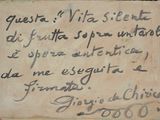 questa: "Vita silente
di frutta sopra un tavolo
è opera autentica,
da me eseguita e
firmata.
Giorgio de Chirico